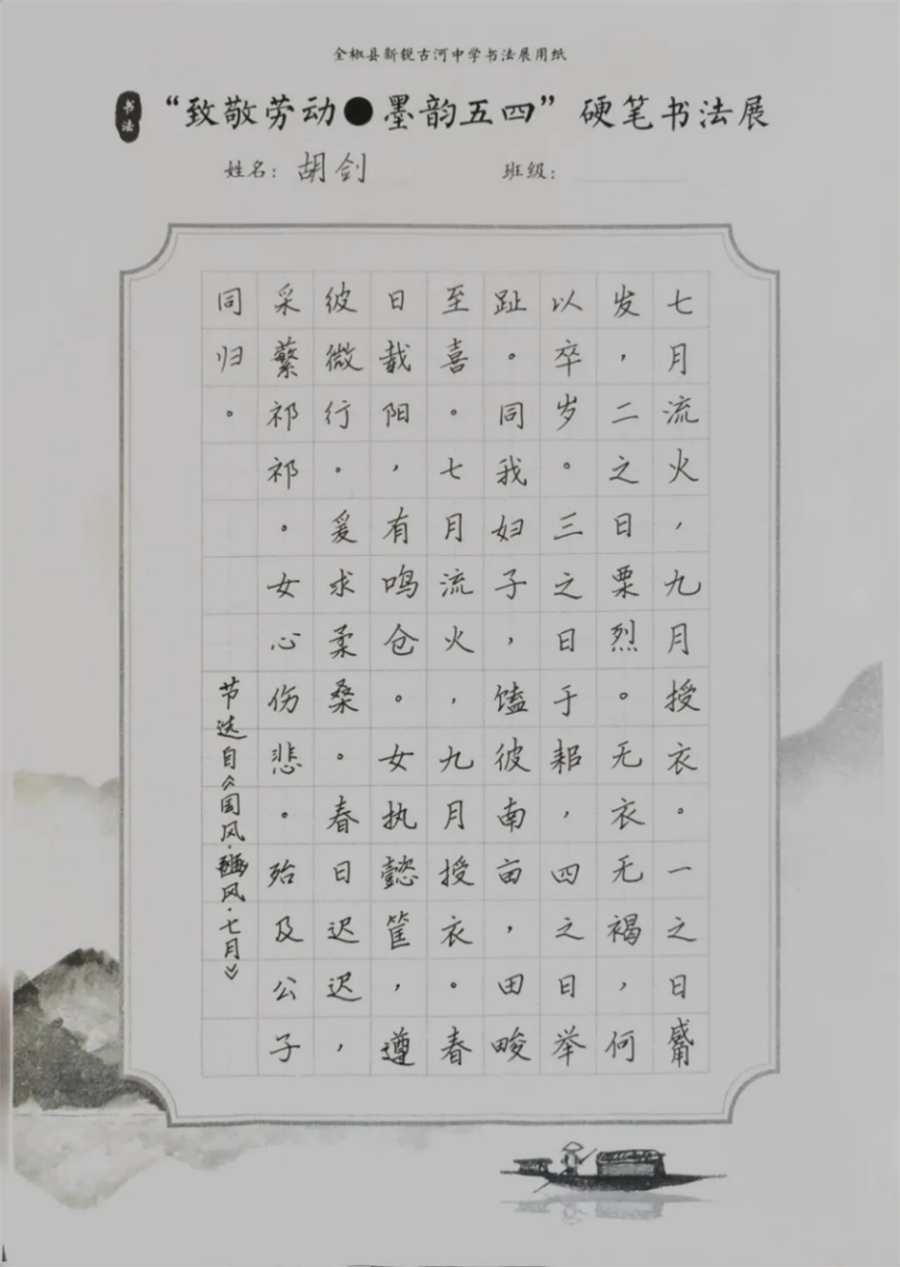 全椒县新锐古河中学书法展用纸
书法
“致敬劳动●墨韵五四”硬笔书法展
姓名：胡剑 班级：
七月流火，九月授衣。一之日觱
发，二之日栗烈。无衣无褐，何
以卒岁。三之日于耜，四之日举
趾。同我妇子，馌彼南亩，田畯
至喜。七月流火，九月授衣。春
日载阳，有鸣仓。女执懿筐，遵
彼微行。爰求柔桑。春日迟迟，
采蘩祁祁。女心伤悲。殆及公子
同归。
节选自《国风·豳风·七月》